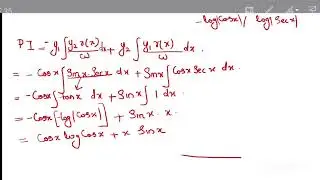 -log|cosx| / log|secx|
P I = -y₁ ∫ y₂ r(x)/ω dx + y₂ ∫ y₁ r(x)/ω dx .
= - Cosx ∫ Sinx. Secx dx + Sinx ∫ Cosx Secx dx
= -Cosx ∫ tanx dx + Sinx ∫ 1 dx
= -Cosx [-log|Cosx|] + Sinx . x .
= Cosx log Cosx + x Sinx